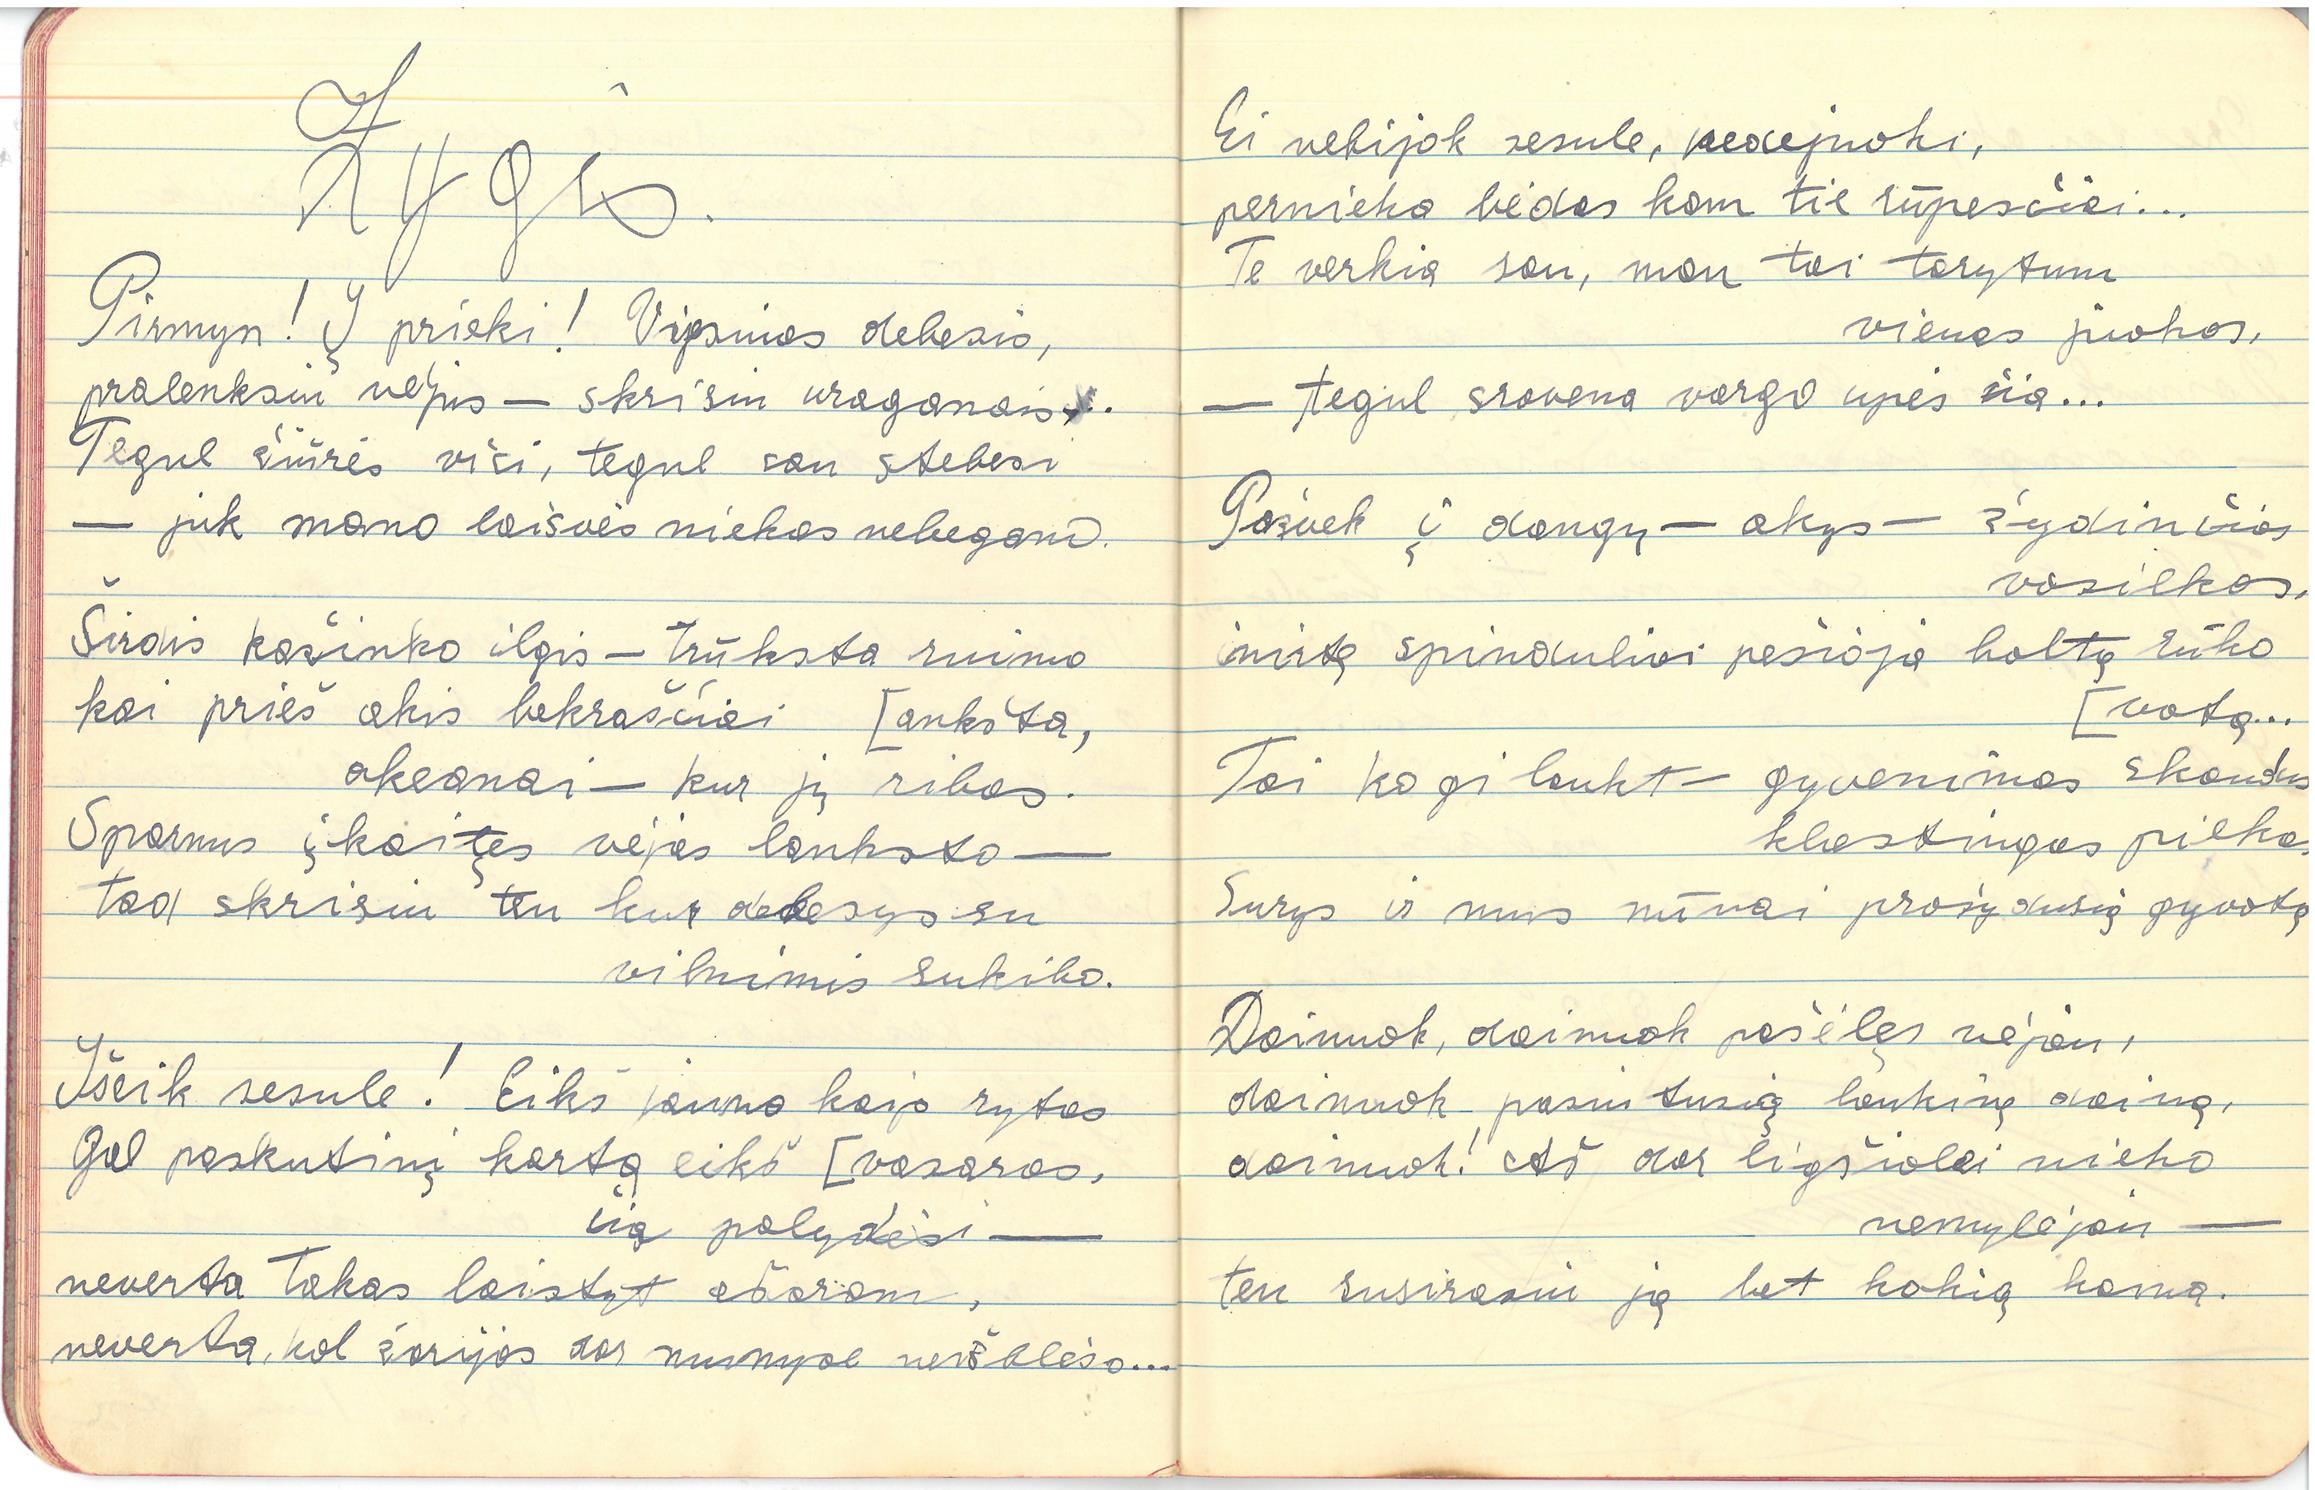 Žygis.
Pirmyn! Į prieki! Vipsmas debesis,
pralenksiu vėjus — skrisiu uraganais.
Tegul žiūrės visi, tegul sau stebesi
— juk mano laisvės niekas nebegano.
Širdis kažinko ilgis — trūksta ruimo
kai prieš akis bekraščiai [ankšta,
okeanai — kur jų ribos.
Sparnus įkaitęs vėjas lanksto —
tad skrisiu ten kur debesys su
vilnimis sukibo.
Išeik sesule! Eikš jauna kaip rytas
Gal paskutinį kartą eikš [vasaros,
čia palydėsi —
neverta takas laistyt ašarom,
neverta, kol žarijos dar mumyse neišblėso...
Ei nebijok sesule, nedejuoki,
pernieko bėdos kam tie rūpesčiai...
Te verkia sau, man tai tarytum
vienas juokas,
— tegul srovena vargo upės čia...
Pažvek į dangų — akys — žydinčios
vosilkos,
inirtę spinduliai pešioja baltą rūko
[vatą...
Tai ko gi laukt — gyvenimas skaudus
klastingas pilkas
Surys ir mus niūnai pražydusią gyvatą
Dainuok, dainuok pašėlęs vėjau,
dainuok pasiutusią laukinę dainą,
dainuok! Aš dar ligšiolei nieko
nemylėjau —
ten susirasiu ją bet kokią kainą.